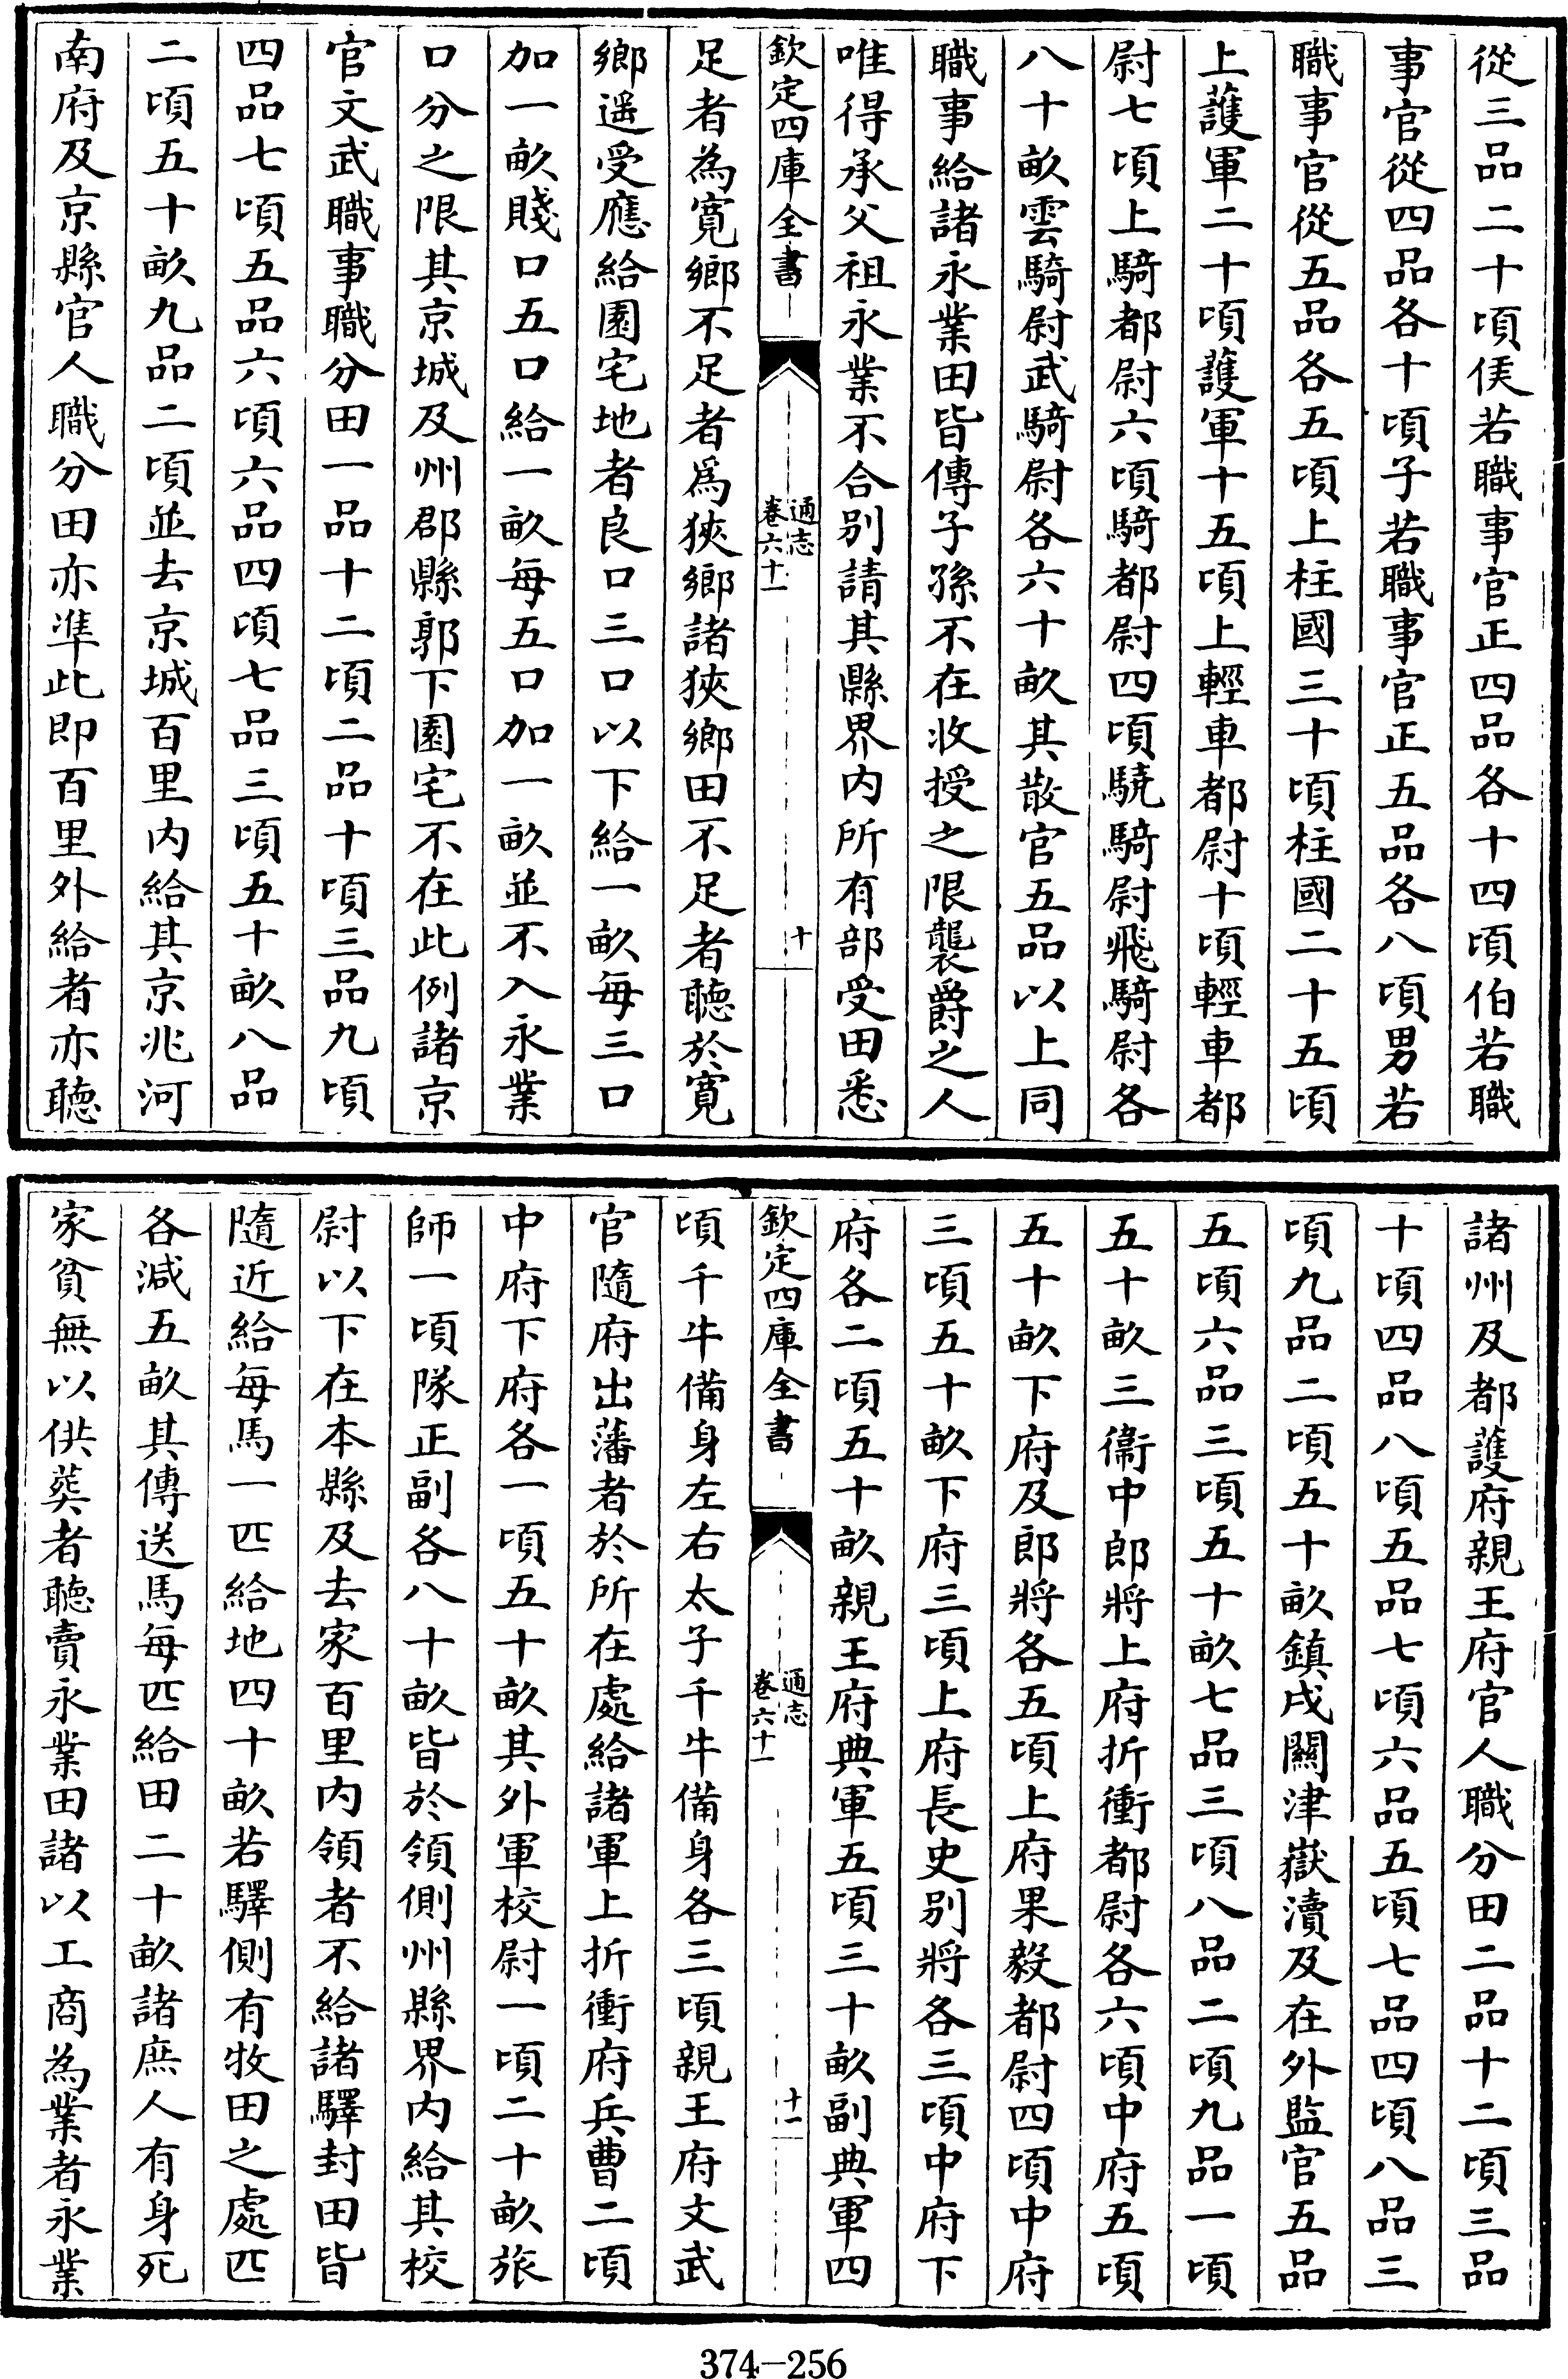 從三品二十頃侯若職事官正四品各十四頃伯若職
事官從四品各十頃子若職事官正五品各八頃男若
職事官從五品各五頃上柱國三十頃柱國二十五頃
上護軍二十頃護軍十五頃上輕車都尉十頃輕車都
尉七頃上騎都尉六頃騎都尉四頃驍騎尉飛騎尉各
八十畝雲騎尉武騎尉各六十畝其散官五品以上同
職事給諸永業田皆傳子孫不在收授之限襲爵之人
唯得承父祖永業不合別請其縣界内所有部受田悉
欽定四庫全書
通志
卷六十一
十
足者為寛鄉不足者爲狹鄉諸狹鄉田不足者聽於寛
鄉遥受應給園宅地者良口三口以下給一畝每三口
加一畝賤口五口給一畝每五口加一畝並不入永業
口分之限其京城及州郡縣郭下園宅不在此例諸京
官文武職事職分田一品十二頃二品十頃三品九頃
四品七頃五品六頃六品四頃七品三頃五十畝八品
二頃五十畝九品二頃並去京城百里内給其京兆河
南府及京縣官人職分田亦準此即百里外給者亦聽
諸州及都護府親王府官人職分田二品十二頃三品
十頃四品八頃五品七頃六品五頃七品四頃八品三
頃九品二頃五十畝鎮戍關津嶽瀆及在外監官五品
五頃六品三頃五十畝七品三頃八品二頃九品一頃
五十畝三衞中郎將上府折衝都尉各六頃中府五頃
五十畝下府及郎將各五頃上府果毅都尉四頃中府
三頃五十畝下府三頃上府長史別將各三頃中府下
府各二頃五十畝親王府典軍五頃三十畝副典軍四
欽定四庫全書
通志
卷六十一
十一
頃千牛備身左右太子千牛備身各三頃親王府文武
官隨府出藩者於所在處給諸軍上折衝府兵曹二頃
中府下府各一頃五十畝其外軍校尉一頃二十畝旅
師一頃隊正副各八十畝皆於領側州縣界内給其校
尉以下在本縣及去家百里内領者不給諸驛封田皆
隨近給每馬一匹給地四十畝若驛側有牧田之處匹
各減五畝其傳送馬每匹給田二十畝諸庶人有身死
家貧無以供葬者聽賣永業田諸以工商為業者永業
374-256